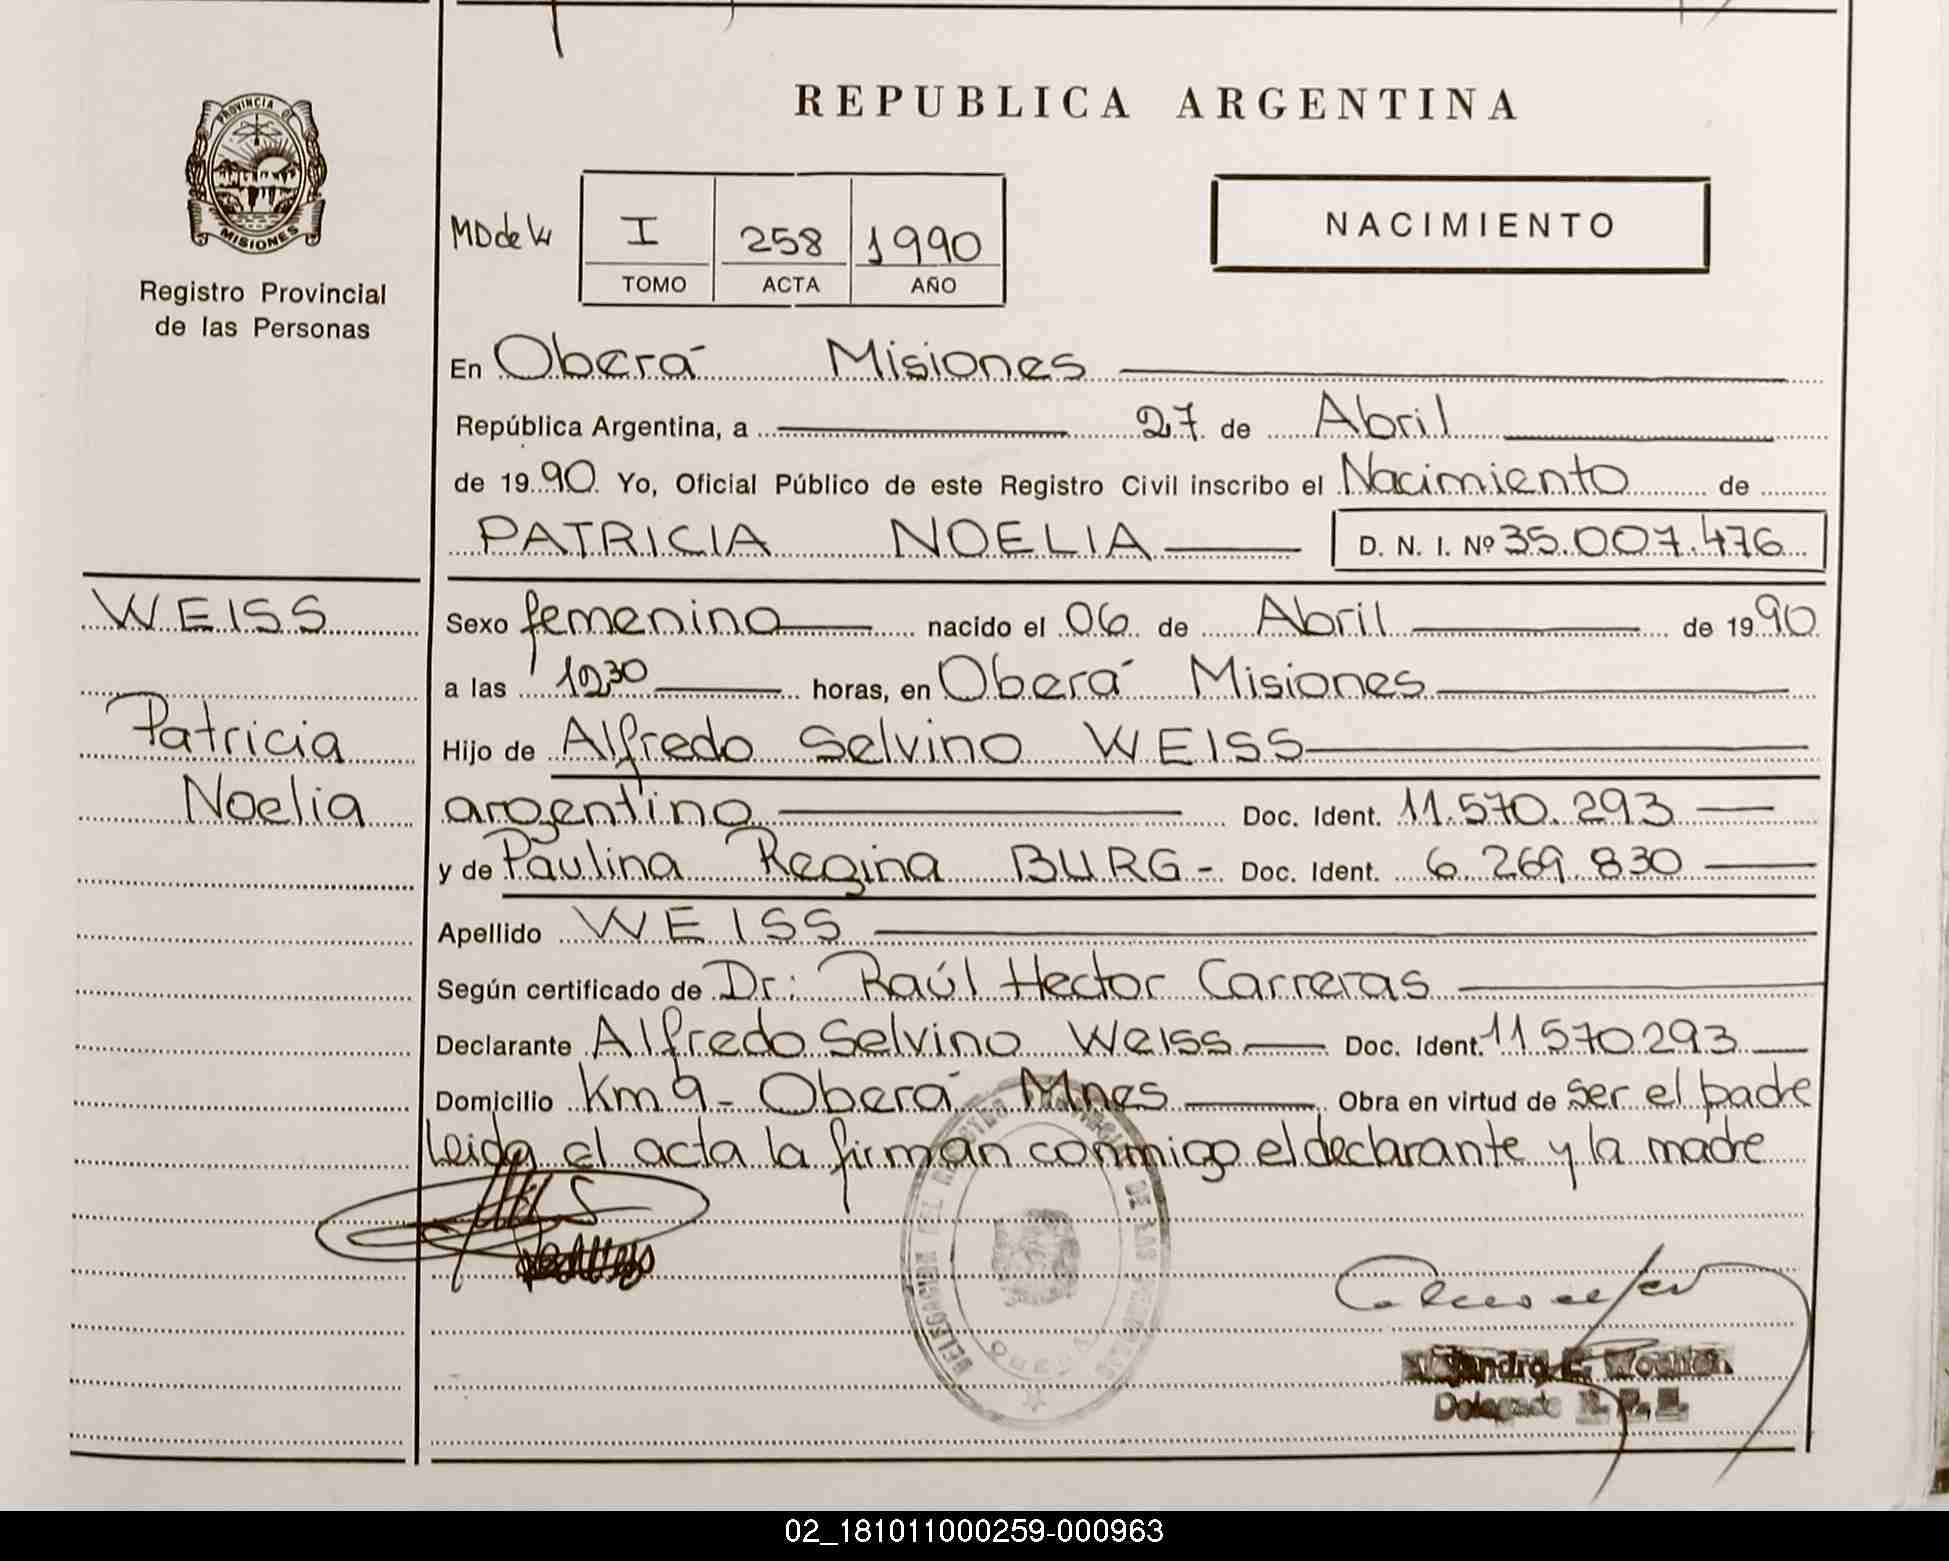 REPUBLICA ARGENTINA
PROVINCIA DE
MISIONES
Registro Provincial
de las Personas
NACIMIENTO
I 258 1990
TOMO ACTA AÑO
En Oberá Misiones
República Argentina, a 27 de Abril
de 1990 Yo, Oficial Público de este Registro Civil inscribo el Nacimiento de
PATRICIA NOELIA D. N. I. Nº 35.007.476
WEISS
Patricia
Noelia
Sexo femenino nacido el 06 de Abril de 1990
a las horas, en Oberá Misiones
Hijo de Alfredo Selvino WEISS
argentino Doc. Ident. 11.570.293
y de Paulina Regina BURG - Doc. Ident. 6.269.830
Apellido WEISS
Según certificado de Dr: Raúl Hector Carreras
Declarante Alfredo Selvino Weiss Doc. Ident. 11570293
Domicilio Km 9 - Oberá Mnes Obra en virtud de ser el padre
Leida el acta la firman conmigo el declarante y la madre
DELEGACION DEL REGISTRO PROVINCIAL DE LAS PERSONAS
02_181011000259-000963